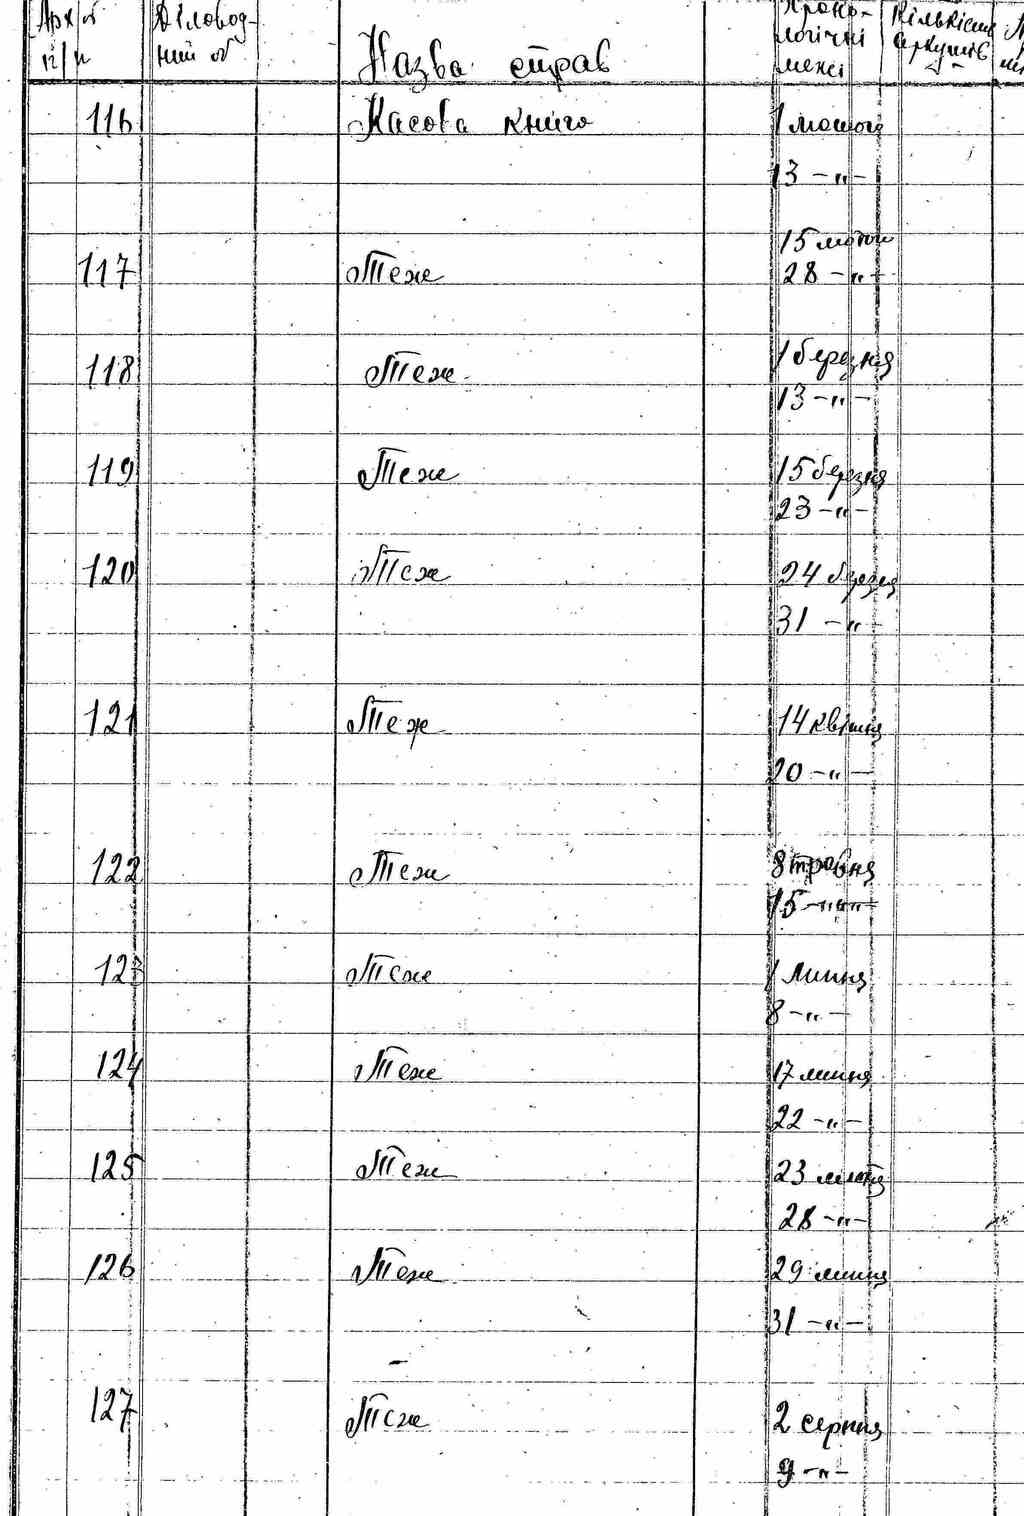 Арх №
п/п
Діловод-
ний №
Назва справ
Хроно-
логічні
межі
Кількість
аркушів
116 Касова книга 1 лютого
13 -"-
15 лютого
117 Теж 28 -"-
118 Теж 1 березня
13 -"-
119 Теж 15 березня
23 -"-
120 Теж 24 березня
31 -"-
121 Теж 14 квітня
20 -"-
122 Теж 8 травня
15 -"-"-
123 Теж 1 липня
8 -"-
124 Теж 17 липня
22 -"-
125 Теж 23 липня
28 -"-
126 Теж 29 липня
31 -"-
127 Теж 2 серпня
9 -"-